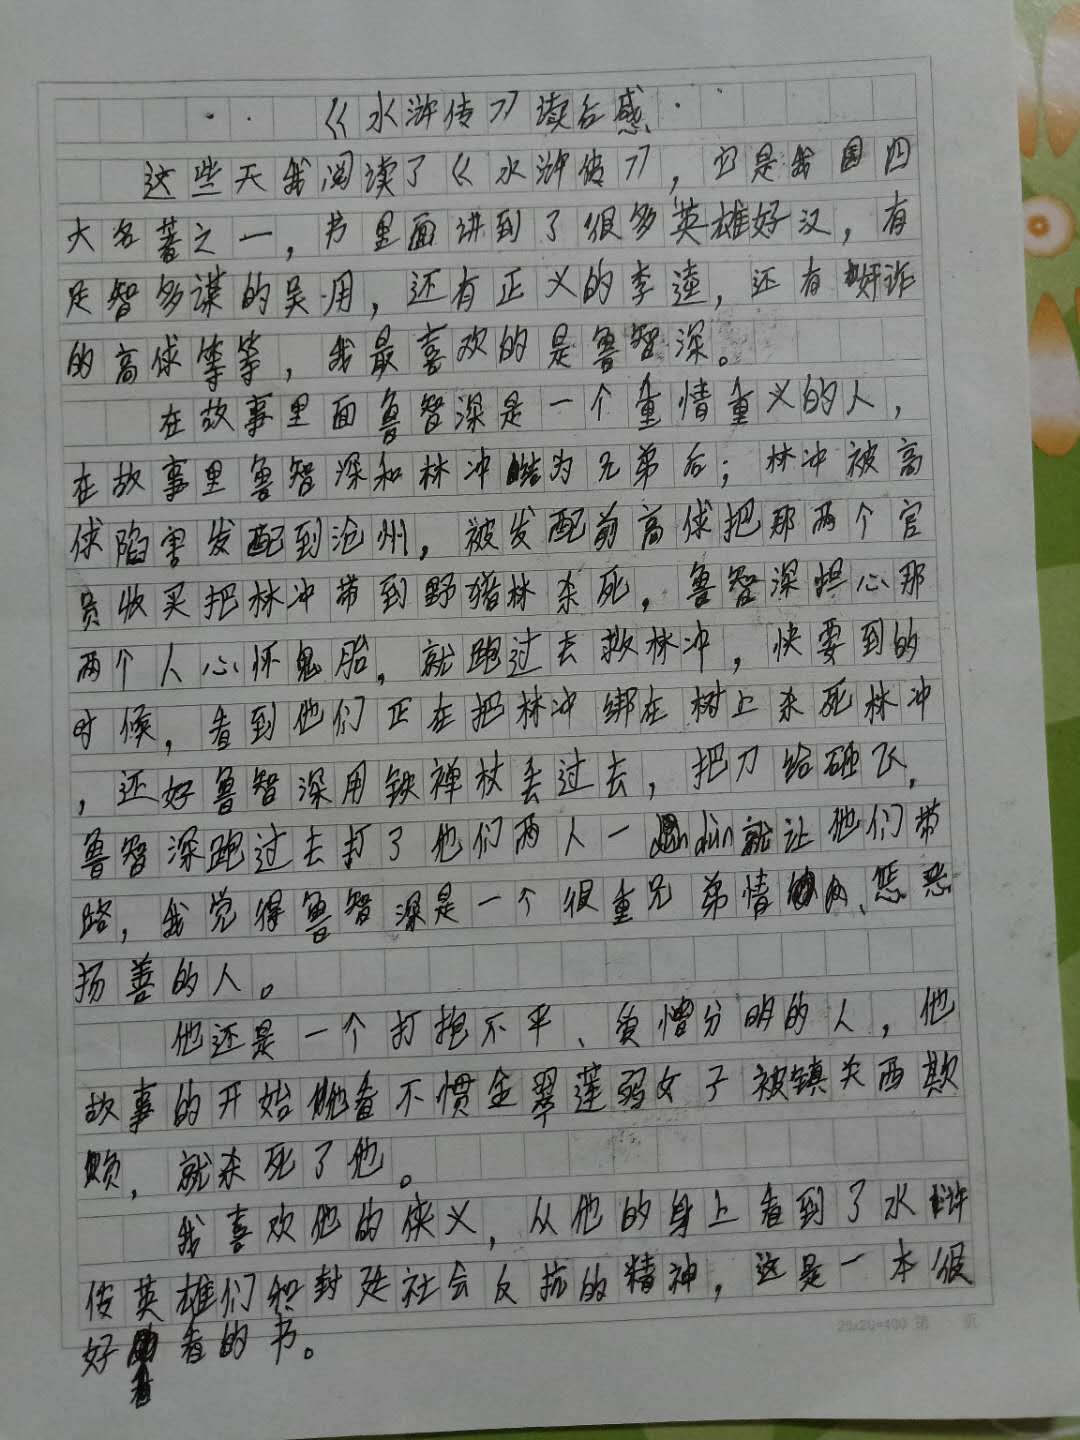 《水浒传》读后感
这些天我阅读了《水浒传》，它是我国四
大名著之一，书里面讲到了很多英雄好汉，有
足智多谋的吴用，还有正义的李逵，还有奸诈
的高俅等等，我最喜欢的是鲁智深。
在故事里面鲁智深是一个重情重义的人，
在故事里鲁智深和林冲结为兄弟后；林冲被高
俅陷害发配到沧州，被发配前高俅把那两个官
员收买把林冲带到野猪林杀死，鲁智深担心那
两个人心怀鬼胎，就跑过去救林冲，快要到的
时候，看到他们正在把林冲绑在树上杀死林冲
，还好鲁智深用铁禅杖丢过去，把刀给砸飞，
鲁智深跑过去打了他们两人一dùn就让他们带
路，我觉得鲁智深是一个很重兄弟情、惩恶
扬善的人。
他还是一个打抱不平、爱憎分明的人，他
故事的开始他看不惯金翠莲弱女子被镇关西欺
负，就杀死了他。
我喜欢他的侠义，从他的身上看到了水浒
传英雄们和封建社会反抗的精神，这是一本很
好看的书。
25x20=400 第 页